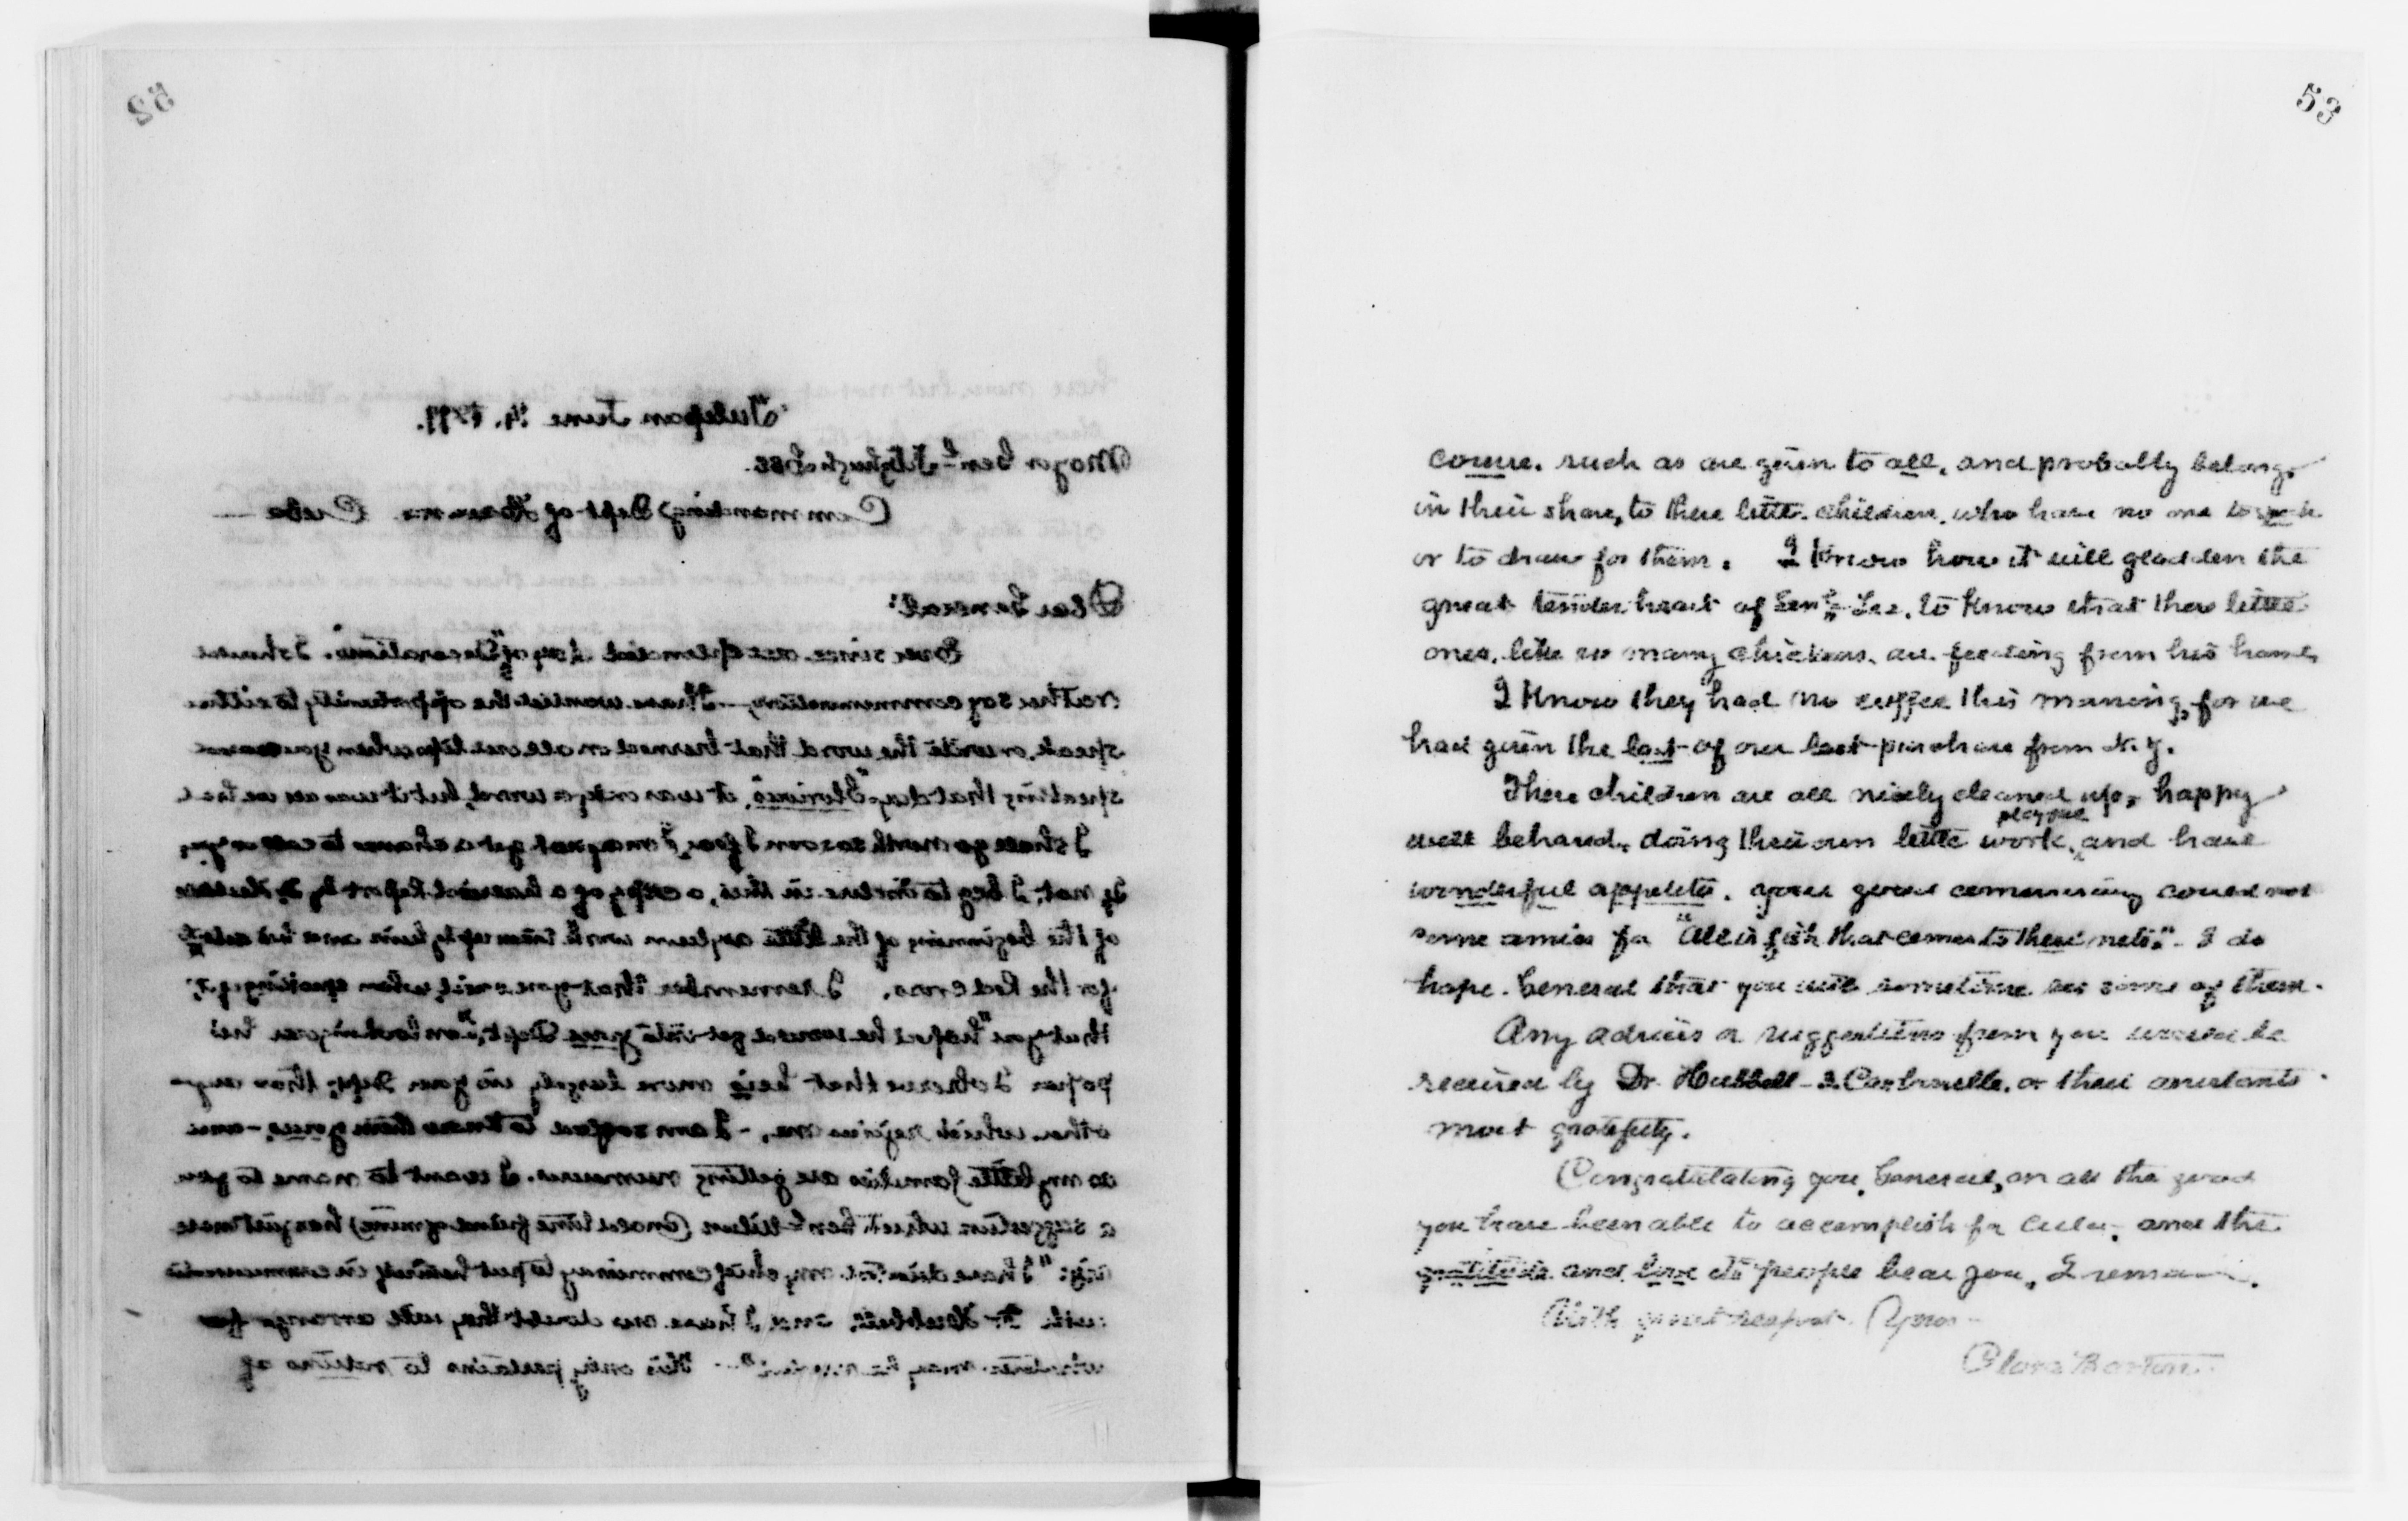 52
Tulipan June 14. 1899.
Major Genl Fitzhugh Lee.
Commanding Dept of Havana Cuba —
Dear General:
Ever since our splendid day of "Decoration". I should
rather say commemoration, — I have wanted the opportunity to either
speak. or write the word that burned on all our lips when you
speaking that day, "Glorious", it was only a word, but it was all we had
I shall go north so soon I fear I may not get a chance to call on you,
If not, I beg to inclose in this, a copy of a hurried Report by
of the beginning of the little asylum work taken up by him and his
for the Red Cross. I remember "that you said, when speaking of it,
that you "hoped he would get into your Dept", on looking over his
paper I observe that he is more largely in your Dept. than any
other. which rejoices me, - I am so glad to know them yours, - and
as my little families are getting numerous. I want to name to you
a suggestion which Genl Wilson (an old time friend of mine) has just made
"I have directed my chief commissary to put himself in communication
with Dr Hubbell, and I have no doubt they will arrange for
whatever may be needed" — this only pertains to rations of
53
course. such as are given to all, and probably belongs
in their share, to these little children. who have no one to work
or to draw for them. I know how it will gladden the
great tender heart of Genl Lee. to know that these little
ones. like so many chickens. are feeding from his hand,
I know they had no coffee this morning, for we
had given the last of our last purchase from N.Y.
These children are all nicely cleaned up, happy
well behaved, doing their own little work, and have
playful
wonderful appetites. your good commissary could not
come amiss for "All is fish that comes to their nets." - I do
hope. General that you will sometime see some of them.
Any advices or suggestions from you would be
received by Dr. Hubbell - & Carbonelle, or their assistants
most gratefully.
Congratulating you, General, on all the good
you have been able to accomplish for Cuba, and the
gratitude and love its people bear you, I remain.
With great respect. Yours -
Clara Barton.